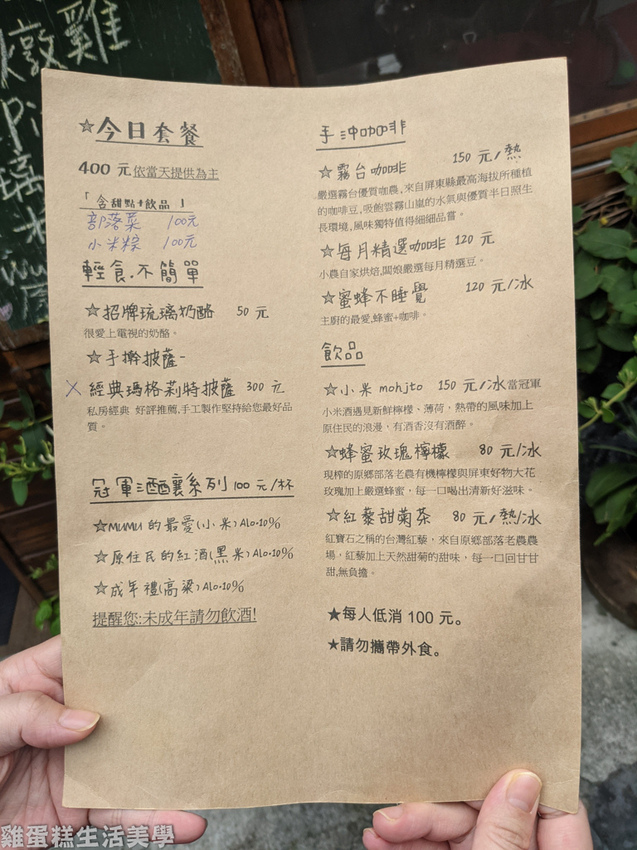 燉雞
☆今日套餐
400 元依當天提供為主
「含甜點+飲品」
部落菜 100元
小米粽 100元
輕食.不簡單
☆招牌琉璃奶酪 50 元
很愛上電視的奶酪。
☆手擀披薩-
X 經典瑪格莉特披薩 300 元
私房經典 好評推薦,手工製作堅持給您最好品
質。
冠軍酒釀系列 100 元/杯
☆MUMU 的最愛(小米)Alo.10%
☆原住民的紅酒(黑米)Alo.10%
☆成年禮(高粱)Alo.10%
提醒您:未成年請勿飲酒!
手沖咖啡
☆霧台咖啡 150 元/熱
嚴選霧台優質咖農,來自屏東縣最高海拔所種植
的咖啡豆,吸飽雲霧山嵐的水氣與優質半日照生
長環境,風味獨特值得細細品嘗。
☆每月精選咖啡 120 元
小農自家烘焙,闆娘嚴選每月精選豆。
☆蜜蜂不睡覺 120 元/冰
主廚的最愛,蜂蜜+咖啡。
飲品
☆小米 mohjto 150 元/冰當冠軍
小米酒遇見新鮮檸檬、薄荷，熱帶的風味加上
原住民的浪漫，有酒香沒有酒醉。
☆蜂蜜玫瑰檸檬 80 元/冰
現榨的原鄉部落老農有機檸檬與屏東好物大花
玫瑰加上嚴選蜂蜜，每一口喝出清新好滋味。
☆紅藜甜菊茶 80 元/熱/冰
紅寶石之稱的台灣紅藜，來自原鄉部落老農農
場，紅藜加上天然甜菊的甜味，每一口回甘甘
甜,無負擔。
★每人低消 100 元。
★請勿攜帶外食。
雞蛋糕生活美學